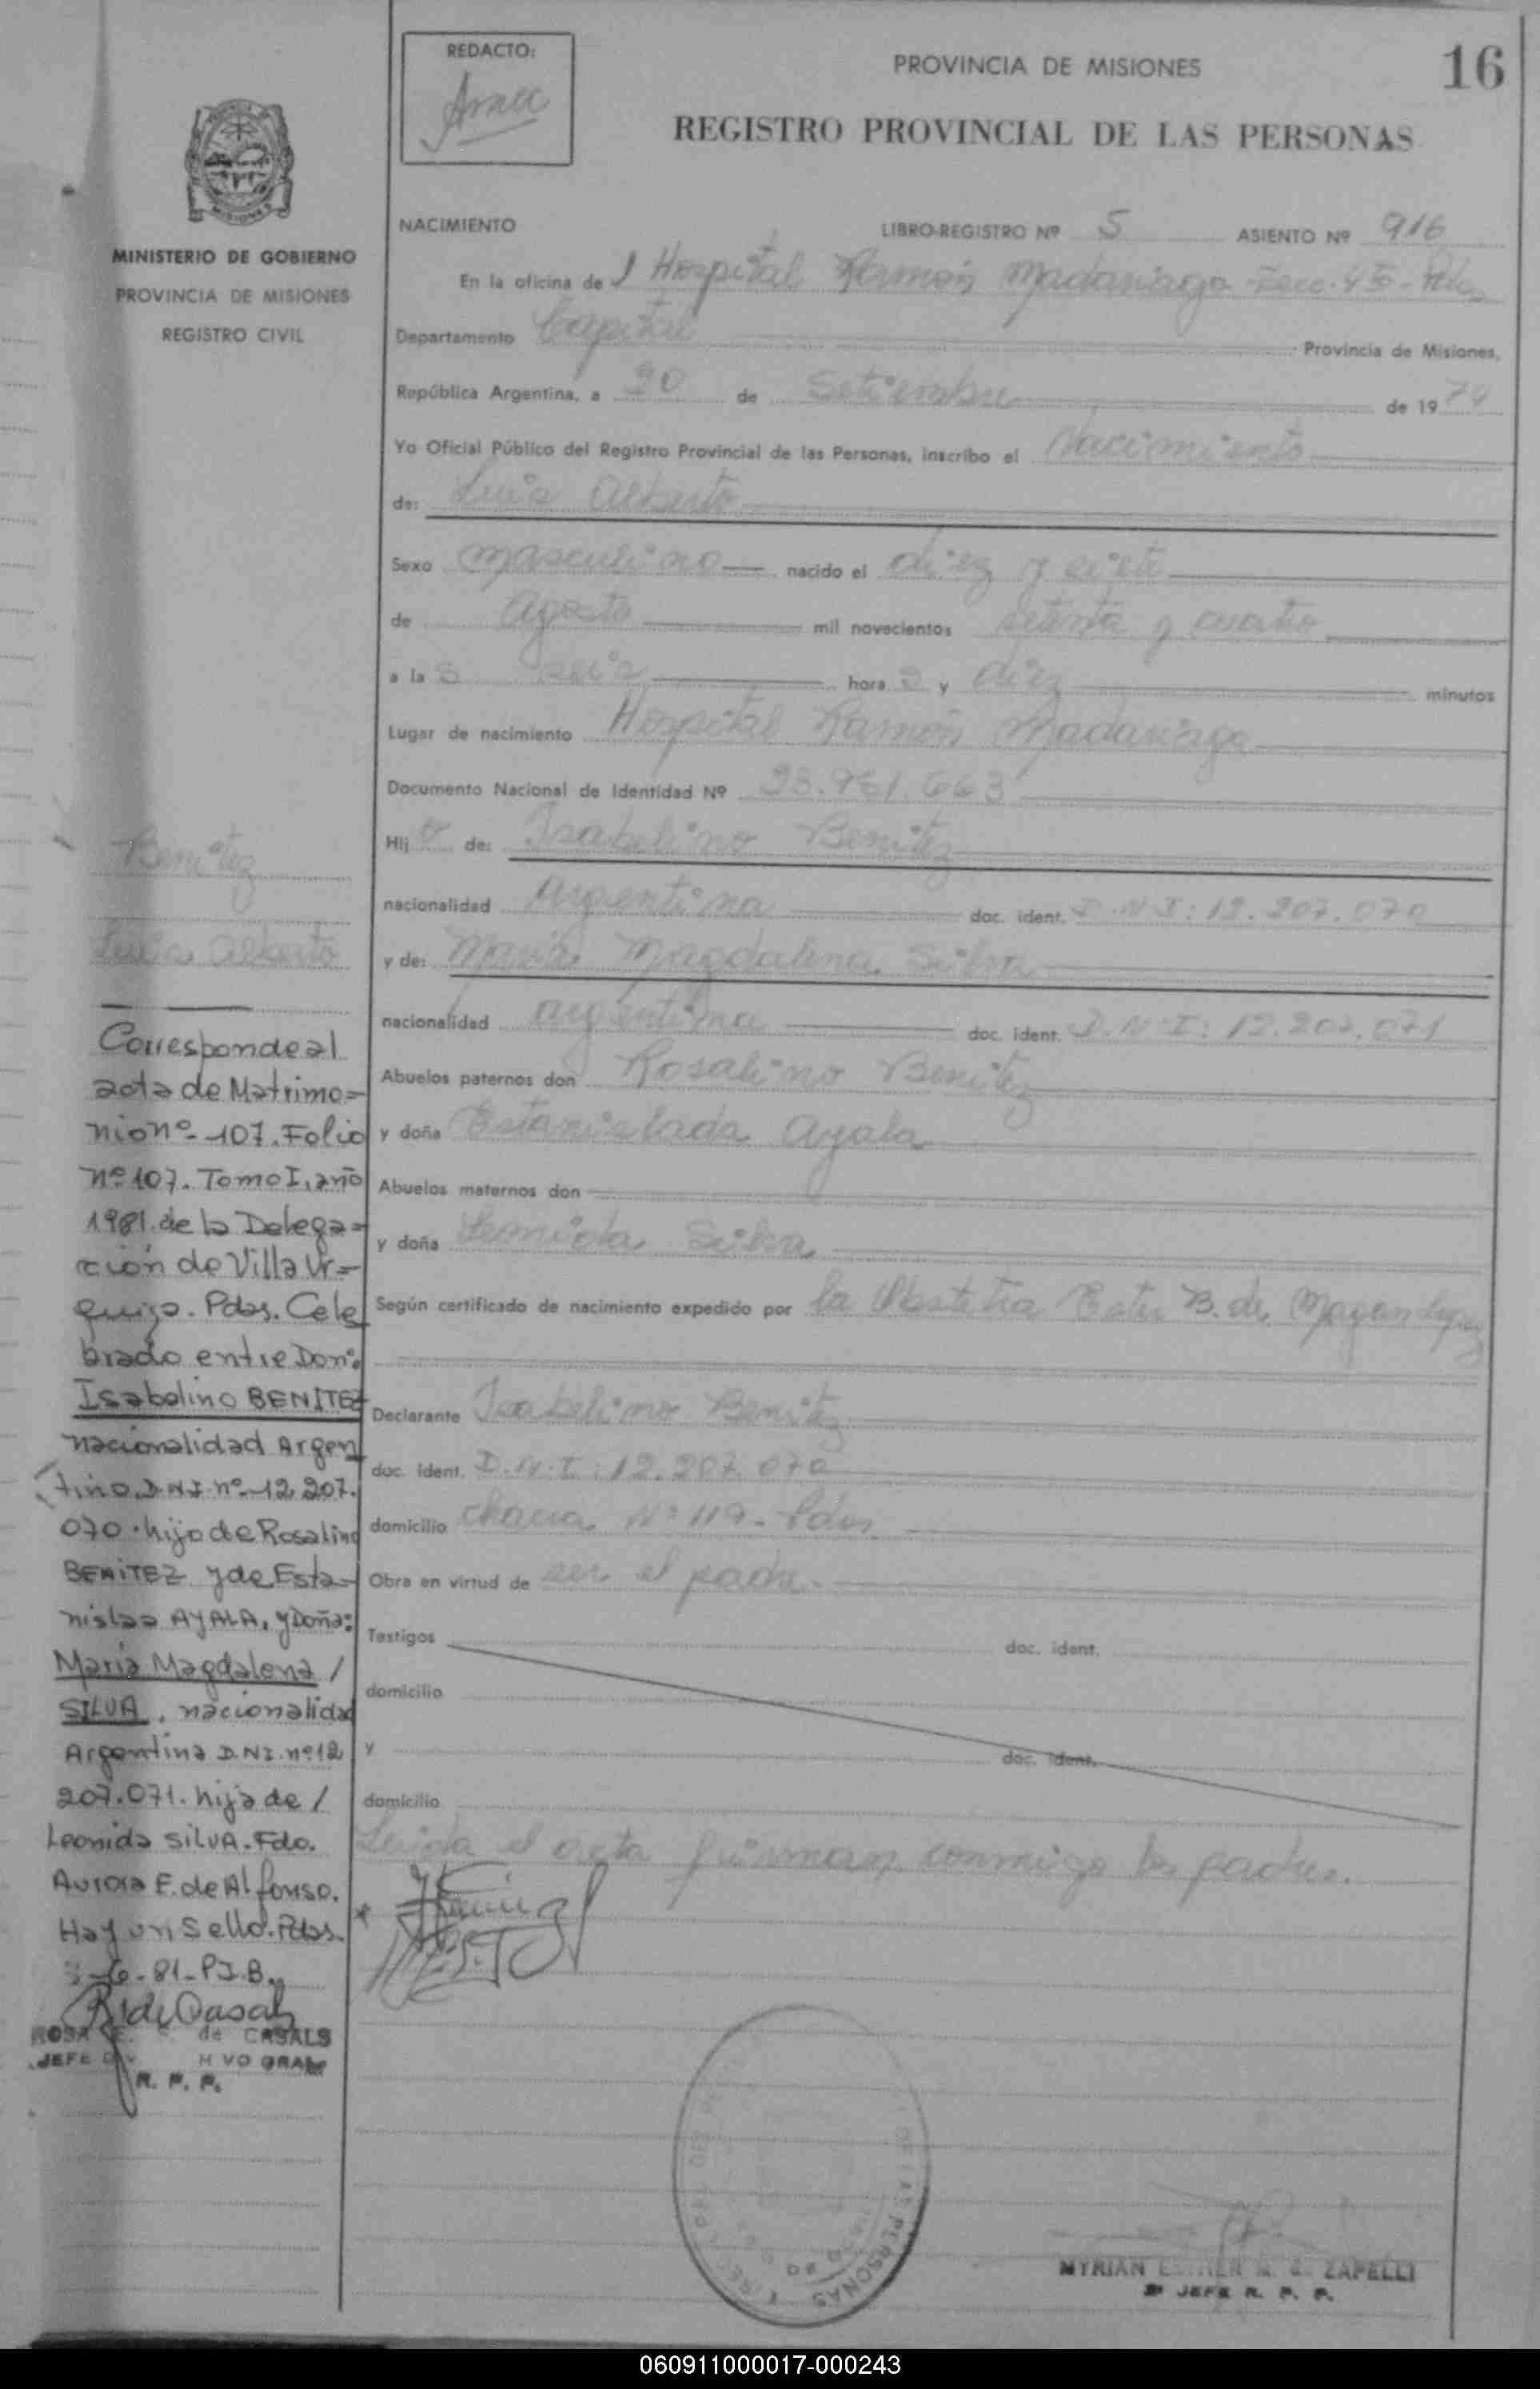 REDACTO:
PROVINCIA DE MISIONES
16
REGISTRO PROVINCIAL DE LAS PERSONAS
MISIONES
MINISTERIO DE GOBIERNO
PROVINCIA DE MISIONES
REGISTRO CIVIL
NACIMIENTO
LIBRO-REGISTRO Nº 5 ASIENTO Nº 916
En la oficina de l Hospital Ramón Madariaga
Departamento Capital Provincia de Misiones,
República Argentina, a 20 de Setiembre de 1974
Yo Oficial Público del Registro Provincial de las Personas, inscribo el Nacimiento
de: Luis Alberto
Sexo masculino nacido el diez y siete
de Agosto mil novecientos setenta y cuatro
a la s seis hora s y diez minutos
Lugar de nacimiento Hospital Ramón Madariaga
Documento Nacional de Identidad Nº 23.961.663
Hij o de: Isabelino Benitez
nacionalidad argentina doc. ident. D.N.I: 12.207.070
y de: María Magdalena Silva
nacionalidad argentina doc. ident. D.N.I: 12.207.071
Abuelos paternos don Rosalino Benitez
y doña Estanislada Ayala
Abuelos maternos don
y doña Leonida Silva
Según certificado de nacimiento expedido por la Obstetra Ester B. de
Declarante Isabelino Benitez
doc. ident. D.N.I: 12.207.070
domicilio Chacra Nº 119 - Pdas.
Obra en virtud de ser el padre.
Testigos doc. ident.
domicilio
y doc. ident.
domicilio
Leida el acta firman conmigo los padres.
Benitez
Luis Alberto
Corresponde al
acta de Matrimo=
nio nº- 107. Folio
nº 107. Tomo I, año
1981. de la Delega=
ción de Villa Ur=
quiza. Pdas. Cele
brado entre Don:
Isabelino BENITEZ
nacionalidad Argen
tino. D.N.I. nº- 12.207.
070. hijo de Rosalino
BENITEZ y de Esta=
nislaa AYALA, y Doña:
María Magdalena /
SILVA, nacionalidad
Argentina D.N.I. nº 12
207.071. hija de /
Leonida SILVA. Fdo.
Aurora F. de Alfonso.
Hay un Sello. Pdas.
-6-81-P.J.B.
R de Casals
ROSA E. de CASALS
JEFE
R. P. P.
DE LAS PERSONAS
MYRIAN ESTHER ZAPELLI
JEFE R. P. P.
060911000017-000243